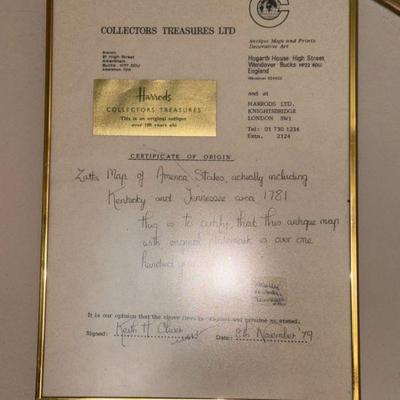 COLLECTORS TREASURES LTD
Antique Maps and Prints
Decorative Art
Hogarth House High Street
Wendover Bucks HP22 6DU
England
High Street
Amersham
Bucks HP7 0DU
and at
HARRODS LTD.
KNIGHTSBRIDGE
LONDON SW1
Tel: 01 730 1234
Extn. 2124
Harrods
COLLECTORS TREASURES
This is an original antique
over 100 years old
CERTIFICATE OF ORIGIN
Zatta Map of America States, actually including
Kentucky and Tennessee circa 1781
This is to certify, that this antique map
with original platemark is over one
hundred
It is our opinion that the above item is original and genuine as stated.
Signed: Keith H Oliver Date: 8th November '79